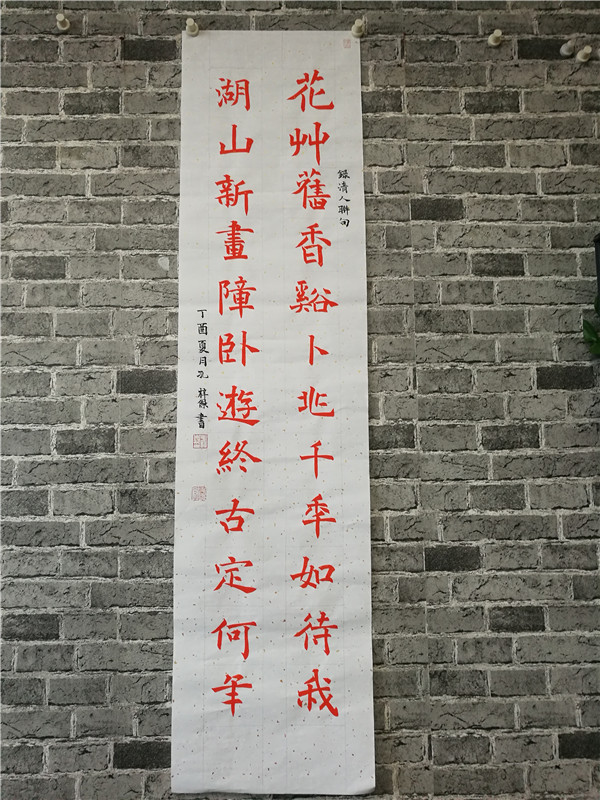 花艸舊香谿卜兆千秊如待我
錄清人聯句
湖山新畫障卧遊終古定何年
丁酉夏月孔祥傑書